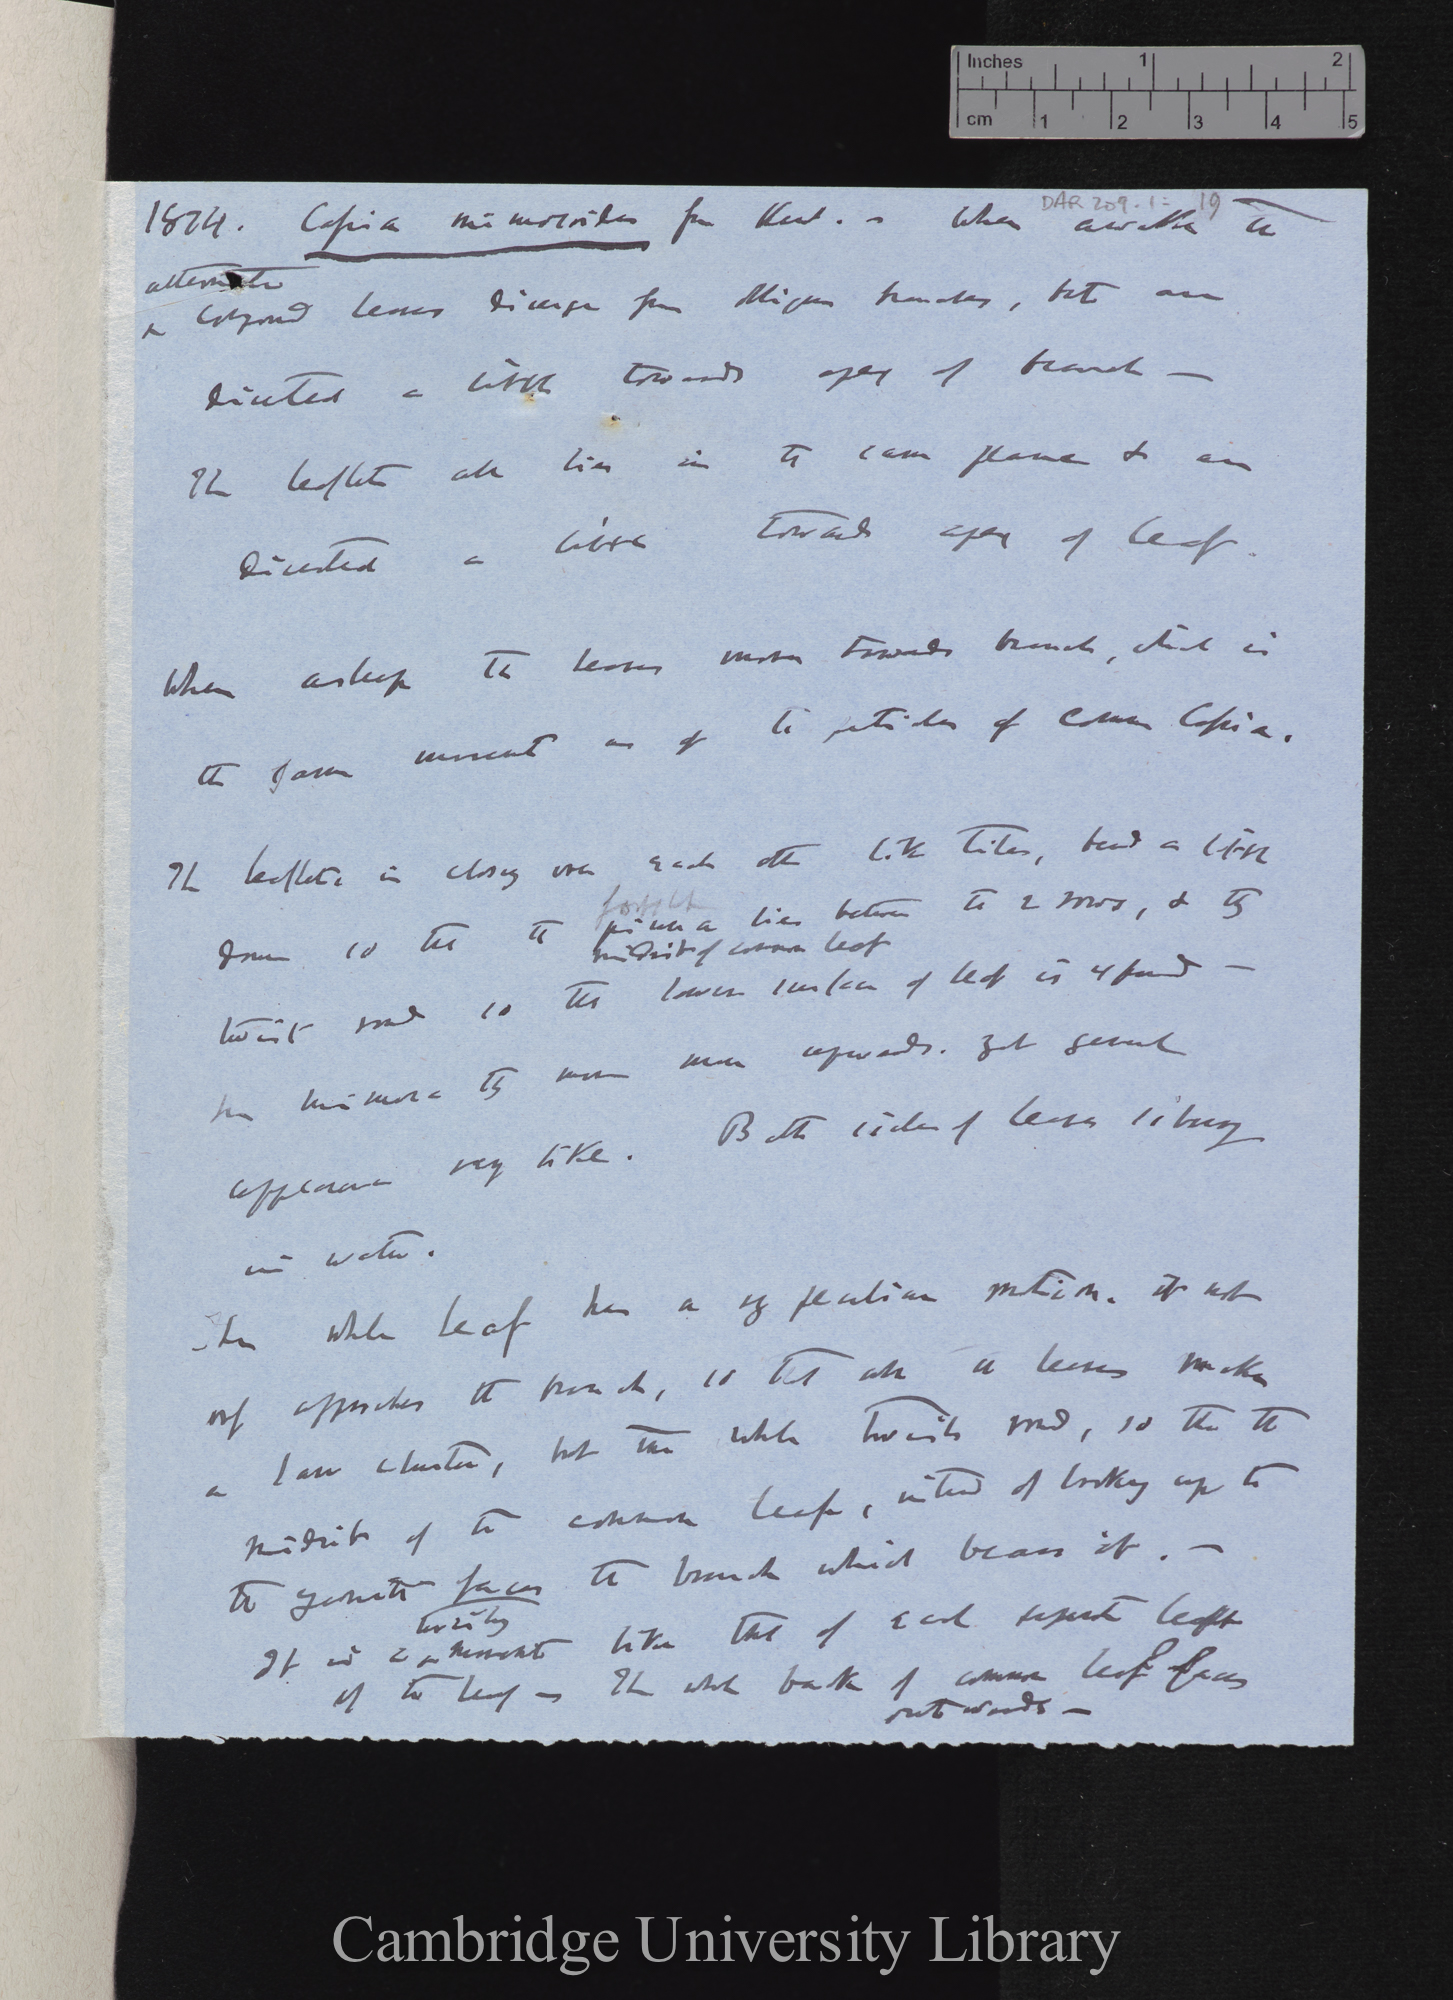 Inches 1 2
cm 1 2 3 4 5
DAR 209.1: 19
1874. Cassia mimosoides from Kew. – When awake the
alternate
compound leaves diverge from branches, but are
directed a little towards apex of branch —
The leaflets all lie in the same plane & are
directed a little towards apex of leaf.
When asleep the leaves move towards branch, which is
the same movement as of the petioles of common Cassia.
The leaflets in closing over each other like tiles, bend a little
down so that the pinna lies between the 2 rows, & they
midrib of common leaf
twist round so that lower surface of leaf is
In mimosa they move more upwards. Yet general
appearance very like. Both sides of leaves silvery
in water.
The whole leaf has a very peculiar motion. it not
only approaches the branch, so that all the leaves make
a cluster, but the whole twists round, so that the
midrib of the common leaf, instead of looking up to
the zenith faces the branch which bears it. —
twisting
It is a movement like that of each separate leaflet
of the leaf — The whole back of common leaf faces
outwards —
Cambridge University Library